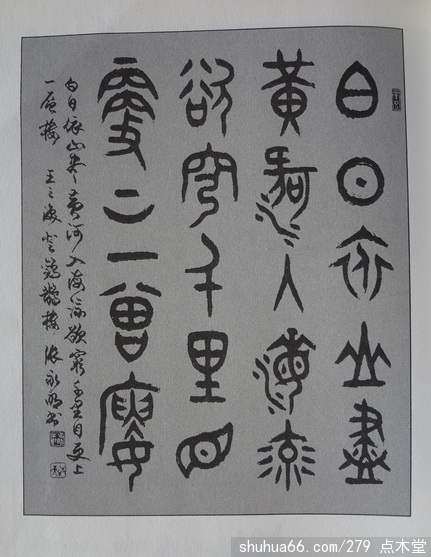 白日依山盡
黃河入海流
欲窮千里目
更上一層樓
白日依山尽黄河入海流欲窮千里目更上
一層樓 王之渙登鸛鵲樓
shuhua66.com/279 点木堂